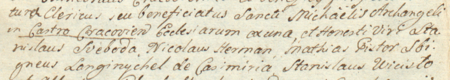 tura Clericus seu beneficiatus Sancti Michaëlis Archangeli
in Castro Cracovien Ecclesiarum et Honesti Viri Sta
nislaus Sveboda, Nicolaus Herman, Mathias Pistor Sbi
gneus Langinychel de Casimiria Stanislaus